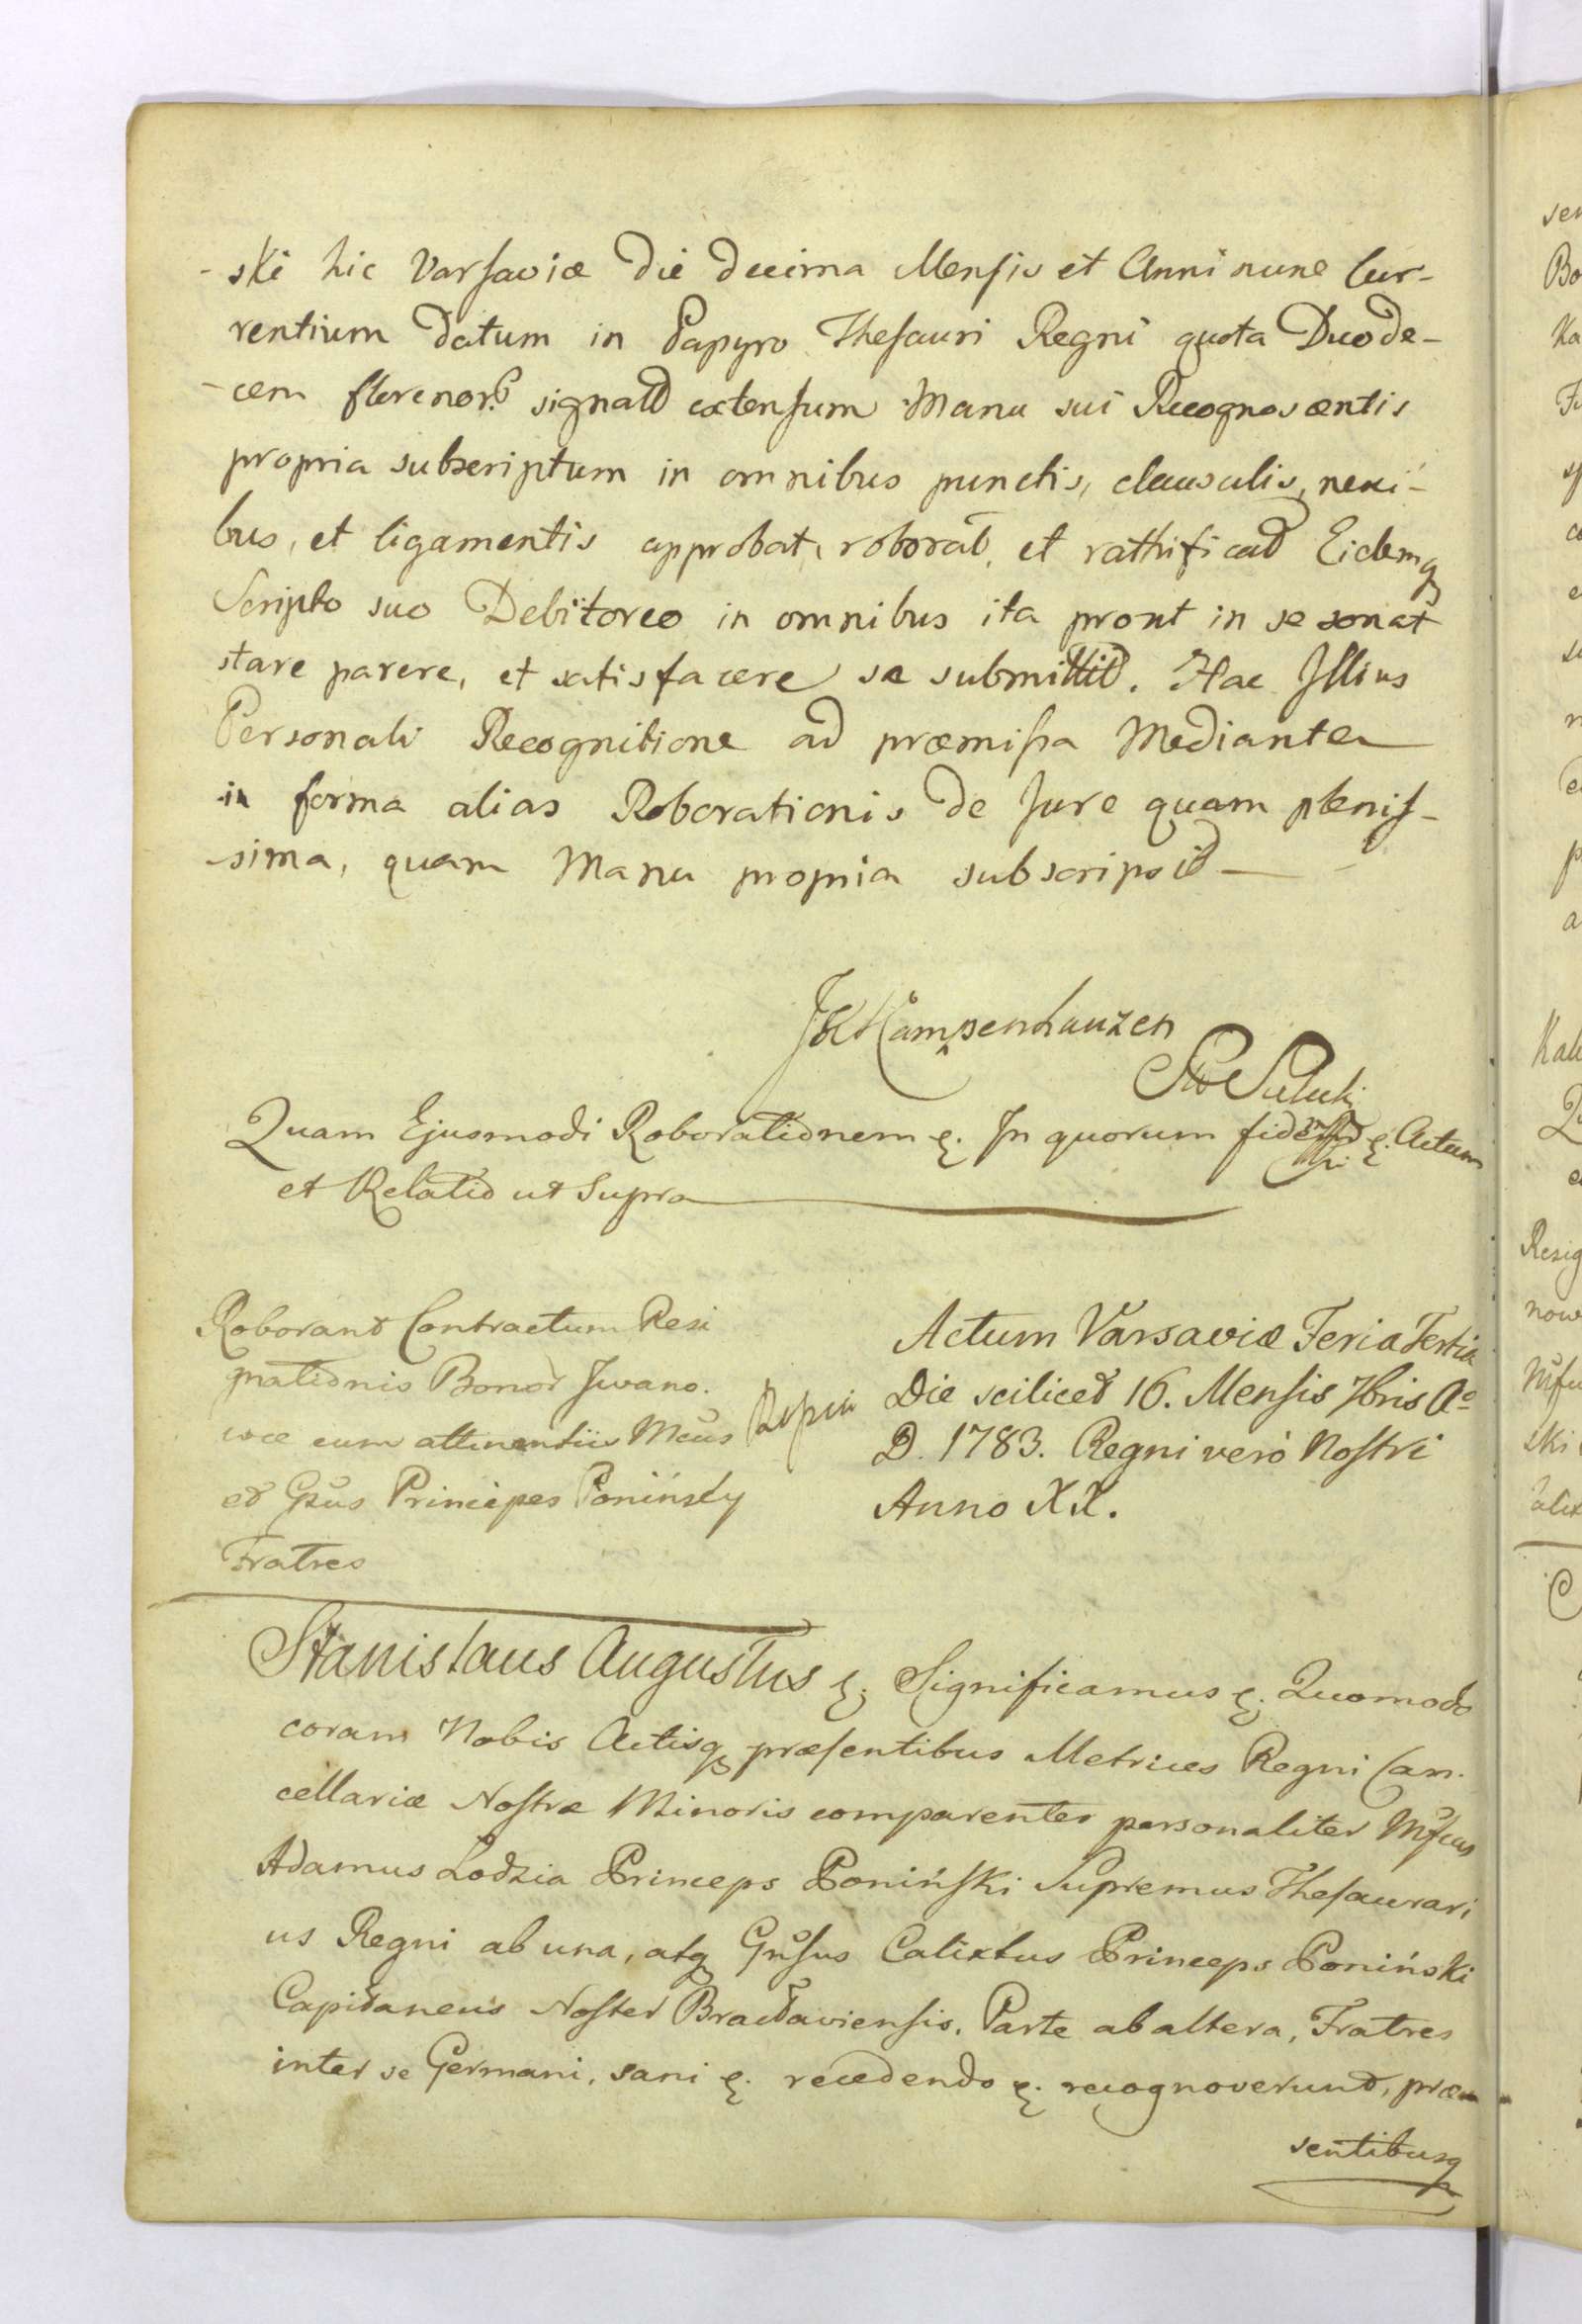 -ski hic Varsaviæ Die decima Mensis et Anni nunc Cur-
rentium Datum in Papyro Thesauri Regni quota Duode-
-cem florenor. signato extensum Manu sui Recognoscentis
propria subscriptum in omnibus punctis, clausulis, nexi-
bus, et ligamentis approbat, roborat, et rattificat Eidemq
Scripto suo Debitoreo in omnibus ita prout in se sonat
stare parere, et satisfacere se submittit. Hac Illius
Personali Recognitione ad præmissa Mediante
in forma alias Roborationis de Jure quam plenis-
-sima, quam Manu propria subscripsit
JK Kampenhauzen
Quam Ejusmodi Roborationem &. In quorum fidem &. Actum
et Relatio ut Supra
Roborant Contractum Resi
gnationis Bonor Iwano.
wce cum attinentiis Mcus
et Gsus Principes Poninsky
Fratres
Actum Varsaviæ Feria Tertia
Die scilicet 16. Mensis 7bris Ao
D. 1783. Regni vero Nostri
Anno XX.
Stanislaus Augustus &. Significamus &. Quomodo
coram Nobis Actisq præsentibus Metrices Regni Can.
cellariæ Nostræ Minoris comparentes personaliter Mfcus
Adamus Lodzia Princeps Poniński Supremus Thesaurari
us Regni ab una, atq Gnsus Calixtus Princeps Poniński
Capitaneus Noster Bracłaviensis, Parte ab altera, Fratres
inter se Germani, sani &. recedendo &. recognoverunt, præ
sentibusq